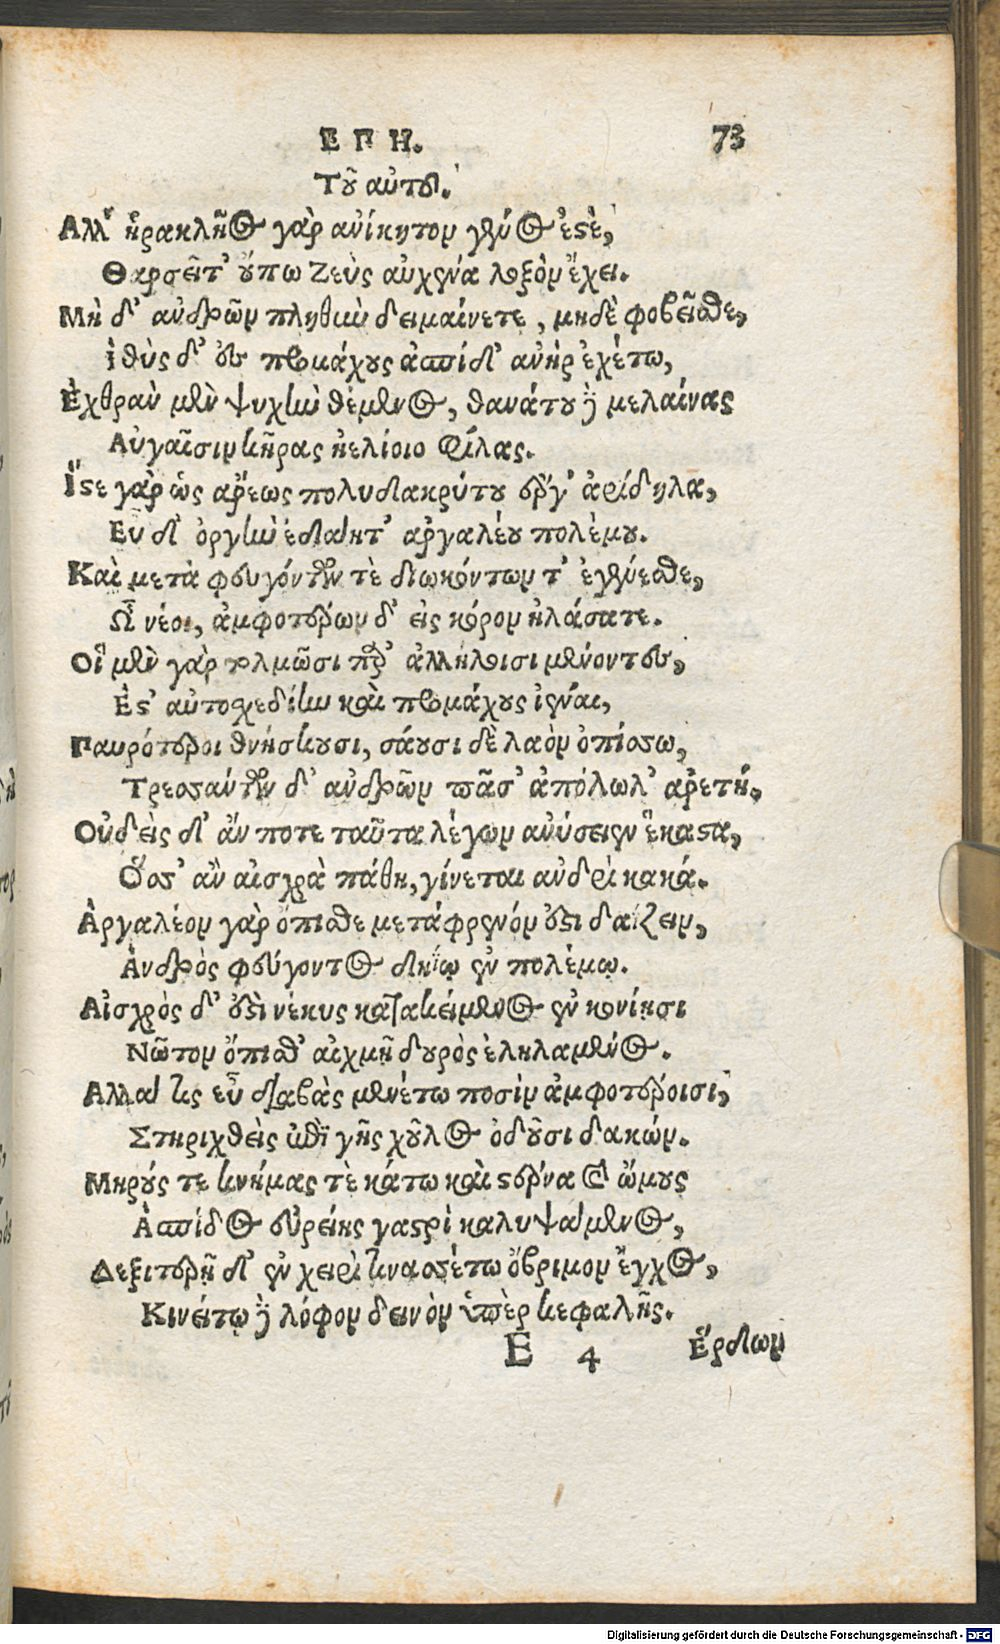 ΕΠΗ. 73
Τοῦ αὐτοῦ.
Ἀλλ' ἡρακλῆος γὰρ ἀνίκητου γένος ἐστὲ,
Θαρσεῖτ' οὔπω Ζεὺς αὐχένα λοξὸν ἔχει.
Μὴ δ' ἀνδρῶν πληθὺν δειμαίνετε, μηδὲ φοβεῖσθε,
Ἰθὺς δ' εἰς προμάχους ἀσπίδ' ἀνὴρ ἐχέτω,
Ἐχθρὰν μὲν ψυχὴν θέμενος, θανάτου δὲ μελαίνας
Αὐγαῖσιν κῆρας ἠελίοιο φίλας.
Ἴστε γὰρ ὡς ἄρεως πολυδακρύτου ἔργ' ἀρίδηλα,
Εὖ δ' ὀργὴν ἐδάητ' ἀργαλέου πολέμου.
Καὶ μετὰ φευγόντων τὲ διωκόντων τ' ἐγένεσθε,
Ὦ νέοι, ἀμφοτέρων δ' εἰς κόρον ἠλάσατε.
Οἳ μὲν γὰρ τολμῶσι παρ' ἀλλήλοισι μένοντες,
Ἔς τ' αὐτοσχεδίην καὶ προμάχους ἰέναι,
Παυρότεροι θνήσκουσι, σάουσι δὲ λαὸν ὀπίσσω,
Τρεσσάντων δ' ἀνδρῶν πᾶσ' ἀπόλωλ' ἀρετή.
Οὐδεὶς δ' ἄν ποτε ταῦτα λέγων ἀνύσειεν ἕκαστα,
Ὅσσ' ἂν αἰσχρὰ πάθη, γίνεται ἀνδρὶ κακά.
Ἀργαλέον γὰρ ὄπισθε μετάφρενόν ἐστι δαΐζειν,
Ἀνδρὸς φεύγοντος δηΐῳ ἐν πολέμῳ.
Αἰσχρὸς δ' ἐστὶ νέκυς κατακείμενος ἐν κονίῃσι
Νῶτον ὄπισθ' αἰχμῇ δουρὸς ἐληλαμένος.
Ἀλλά τις εὖ διαβὰς μενέτω ποσὶν ἀμφοτέροισι,
Στηριχθεὶς ἐπὶ γῆς χεῖλος ὀδοῦσι δακών.
Μηρούς τε κνήμας τὲ κάτω καὶ στέρνα καὶ ὤμους
Ἀσπίδος εὐρείης γαστρὶ καλυψάμενος,
Δεξιτερῇ δ' ἐν χειρὶ τινασσέτω ὄβριμον ἔγχος,
Κινείτω δὲ λόφον δεινὸν ὑπὲρ κεφαλῆς.
E 4 Ἔρδων
Digitalisierung gefördert durch die Deutsche Forschungsgemeinschaft - DFG